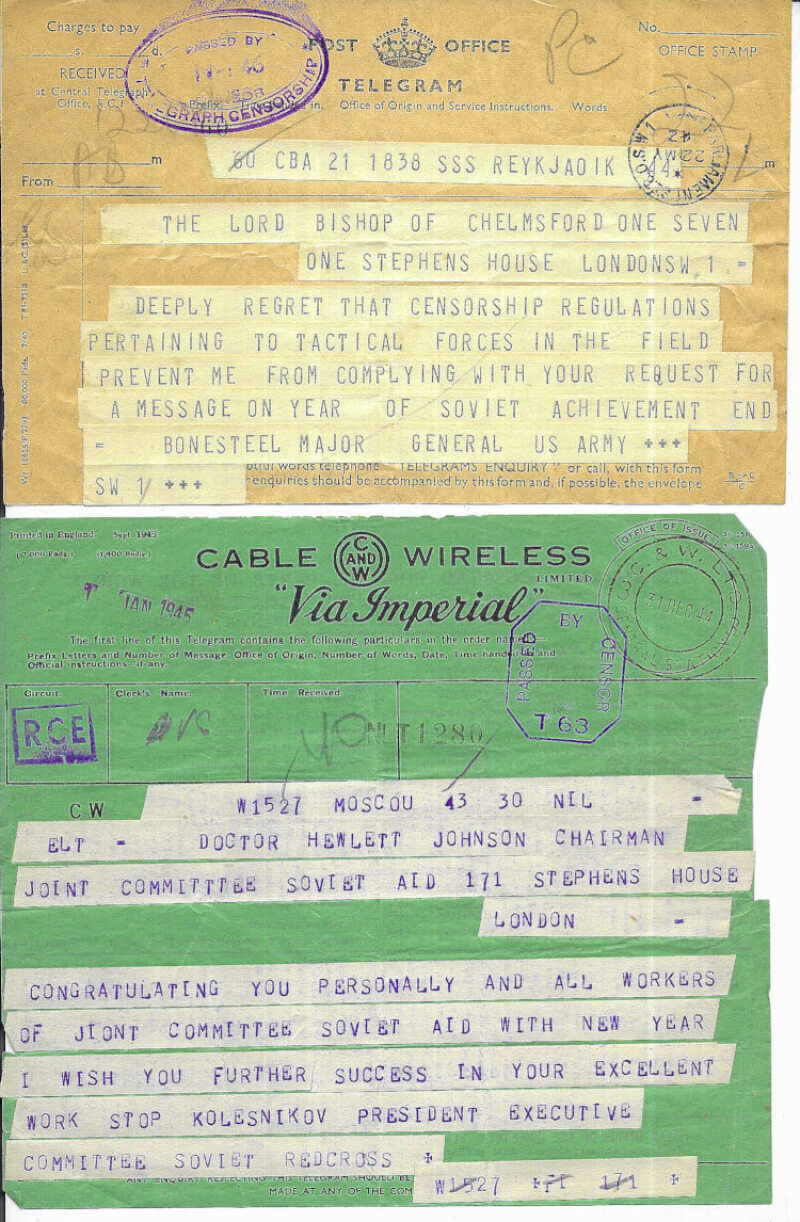 Charges to pay
s. d.
POST OFFICE
No.
OFFICE STAMP
RECEIVED
at Central Telegraph
Office, E.C.1
PASSED BY
TELEGRAPH CENSORSHIP
TELEGRAM
Prefix. in. Office of Origin and Service Instructions. Words
PARLIAMENT
22 MY
42
S.W.1
m
m
From
60 CBA 21 1838 SSS REYKJAOIK 44
THE LORD BISHOP OF CHELMSFORD ONE SEVEN
ONE STEPHENS HOUSE LONDONSW 1 =
DEEPLY REGRET THAT CENSORSHIP REGULATIONS
PERTAINING TO TACTICAL FORCES IN THE FIELD
PREVENT ME FROM COMPLYING WITH YOUR REQUEST FOR
A MESSAGE ON YEAR OF SOVIET ACHIEVEMENT END
= BONESTEEL MAJOR GENERAL US ARMY +++
SW 1/ +++
words telephone "TELEGRAMS ENQUIRY" or call, with this form
enquiries should be accompanied by this form and, if possible, the envelope
B or C
Printed in England. Sept. 1943
CABLE C AND W WIRELESS
LIMITED
"Via Imperial"
JAN 1945
OFFICE OF ISSUE
C. & W. LTD
31 DEC 44
The first line of this Telegram contains the following particulars in the order named
Prefix Letters and Number of Message Office of Origin, Number of Words, Date, Time handed and
Official instructions—if any.
PASSED BY CENSOR
T 63
Circuit.
Clerk's Name.
Time Received.
RCE
NLT1280
CW
W1527 MOSCOU 43 30 NIL =
ELT = DOCTOR HEWLETT JOHNSON CHAIRMAN
JOINT COMMITTTEE SOVIET AID 171 STEPHENS HOUSE
LONDON =
CONGRATULATING YOU PERSONALLY AND ALL WORKERS
OF JIONT COMMITTEE SOVIET AID WITH NEW YEAR
I WISH YOU FURTHER SUCCESS IN YOUR EXCELLENT
WORK STOP KOLESNIKOV PRESIDENT EXECUTIVE
COMMITTEE SOVIET REDCROSS +
ANY ENQUIRY RESPECTING THIS TELEGRAM SHOULD BE
MADE AT ANY OF THE COM
W1527 +FI 171 +